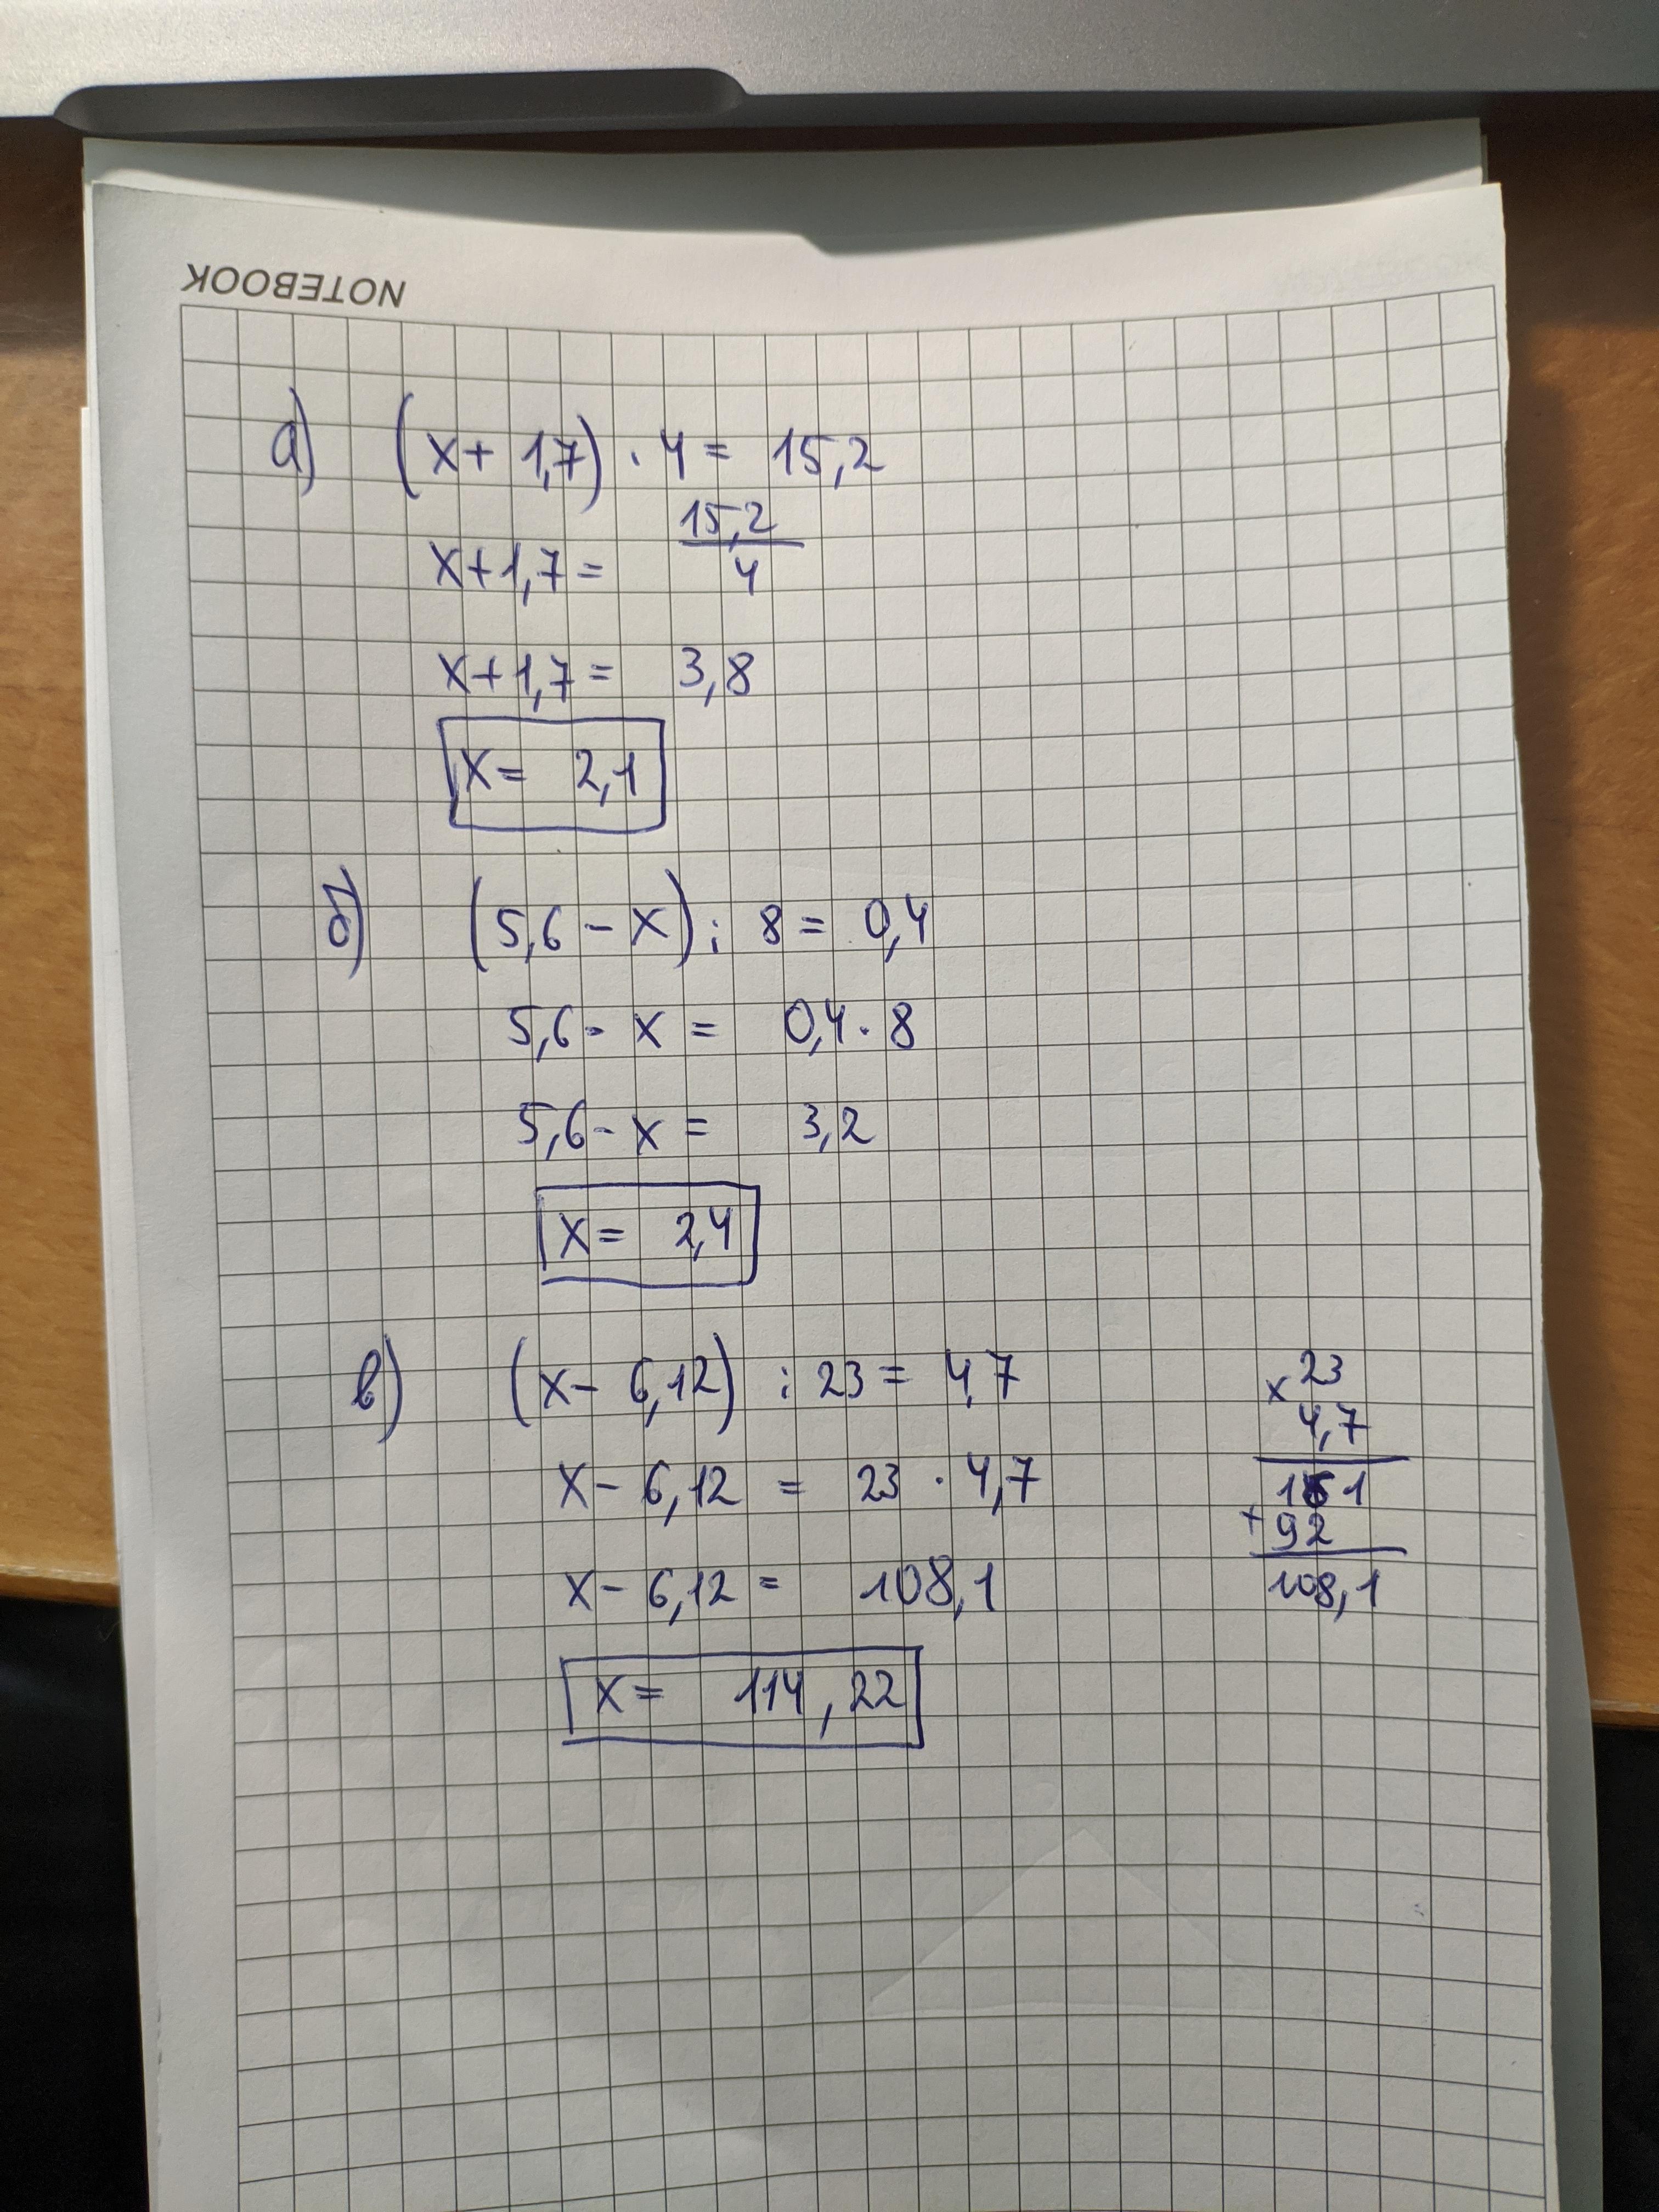 NOTEBOOK
а) (x + 1,7) · 4 = 15,2
x + 1,7 = 15,2/4
x + 1,7 = 3,8
x = 2,1
б) (5,6 - x) : 8 = 0,4
5,6 - x = 0,4 · 8
5,6 - x = 3,2
x = 2,4
в) (x - 6,12) : 23 = 4,7
x - 6,12 = 23 · 4,7
x - 6,12 = 108,1
x = 114,22
× 23
4,7
161
+ 92
108,1